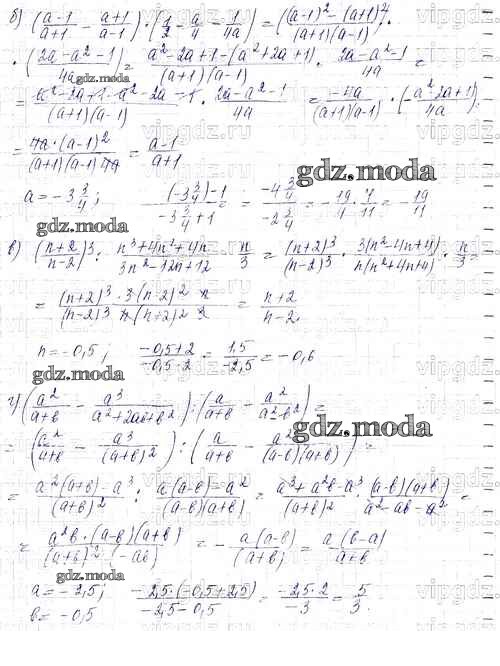 б) (a-1/a+1 - a+1/a-1) · (1/2 - a/4 - 1/4a) = ((a-1)² - (a+1)²/(a+1)(a-1)) ·
· (2a-a²-1/4a) = a²-2a+1-(a²+2a+1)/(a+1)(a-1) · 2a-a²-1/4a =
= a²-2a+1-a²-2a-1/(a+1)(a-1) · 2a-a²-1/4a = -4a/(a+1)(a-1) · (-a²-2a+1)/4a)
= 4a·(a-1)²/(a+1)(a-1)4a = a-1/a+1
gdz.moda
a = -3 3/4; (-3 3/4)-1/-3 3/4+1 = -4 3/4/-2 3/4 = - 19/4 · 4/11 = - 19/11
gdz.moda
в) (n+2/n-2)³ : n³+4n²+4n/3n²-12n+12 · n/3 = (n+2)³/(n-2)³ · 3(n²-4n+4)/n(n²+4n+4) · n/3 =
= (n+2)³ · 3(n-2)² n/(n-2)³ n(n+2)² 3 = n+2/n-2
n = -0,5; -0,5+2/-0,5-2 = 1,5/-2,5 = -0,6
gdz.moda
г) (a²/a+b - a³/a²+2ab+b²) : (a/a+b - a²/a²-b²) =
gdz.moda
= (a²/a+b - a³/(a+b)²) : (a/a+b - a²/(a-b)(a+b)) =
= a²(a+b)-a³/(a+b)² : a(a-b)-a²/(a-b)(a+b) = a³+a²b-a³/(a+b)² · (a-b)(a+b)/a²-ab-a² =
= a²b·(a-b)(a+b)/(a+b)²·(-ab) = - a(a-b)/(a+b) = a(b-a)/a+b
a = -2,5; -2,5·(-0,5+2,5)/-2,5-0,5 = -2,5·2/-3 = 5/3.
gdz.moda
b = -0,5
vipgdz.ru